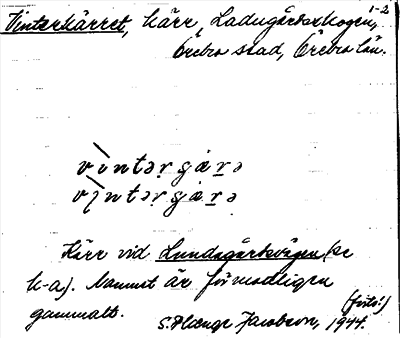 1-2
Vinterkärret, kärr, Ladugårdsskogen,
Örebro stad, Örebro län.
vìntər
vìntər
Kärr vid Lundagårdsvägen (se
k-a). Namnet är förmodligen
gammalt. (forts!)
S. Hænge Jacobson, 1944.